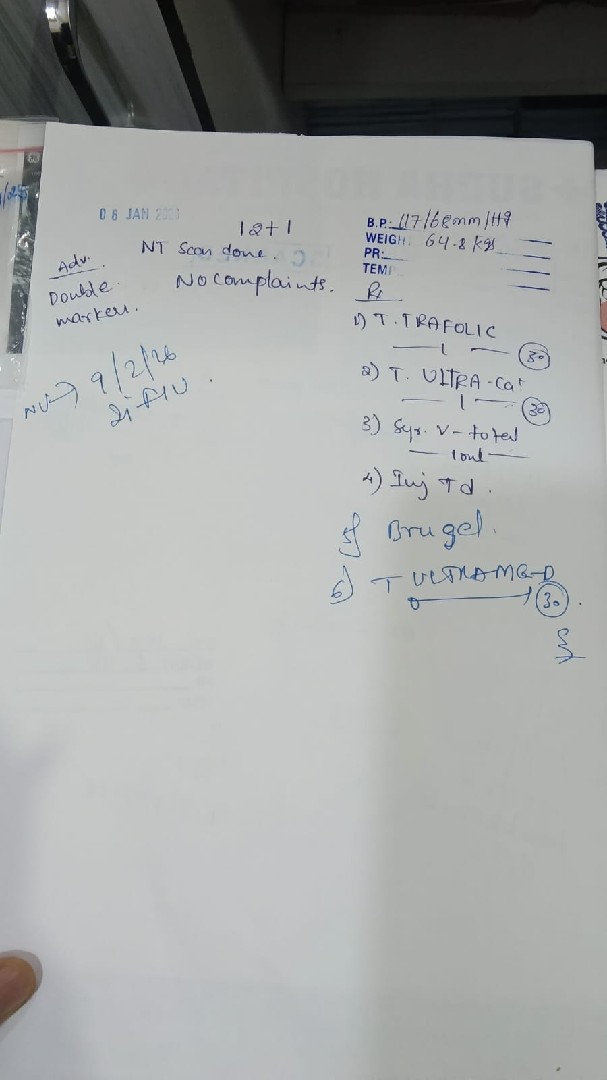 08 JAN
12+1
NT Scan done.
No complaints.
Adv.
Double
marker.
NV→ 9/2/26
B.P.: 117/68mm/Hg
WEIGH: 64.8 kgs
PR:
TEMP
Rx
1) T. TRAFOLIC
1 30
2) T. ULTRA-Cal
1 30
3) Syr. V-toted
4) Inj Td.
5) Brugel.
6) T ULTRAMG-D
30